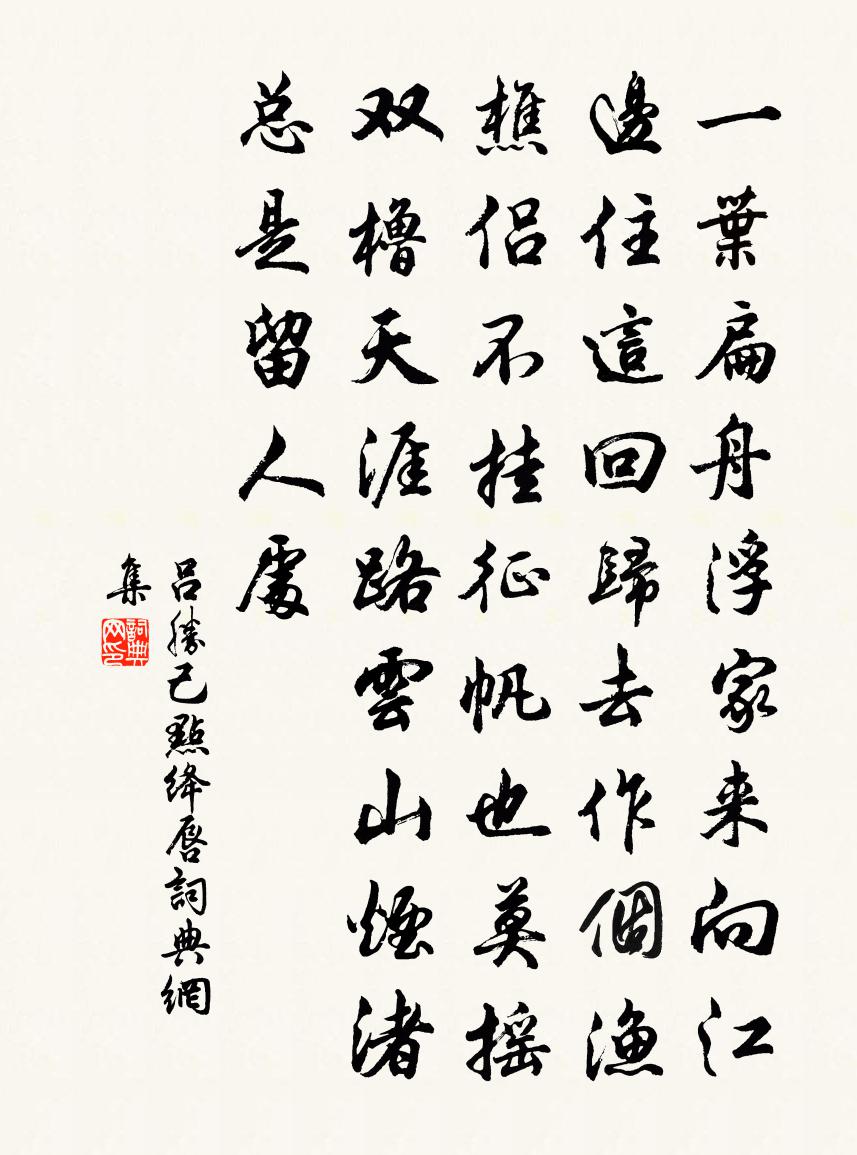 一葉扁舟浮家来向江
邊住這回歸去作個漁
樵侣不挂征帆也莫摇
双櫓天涯路雲山煙渚
总是留人處
吕勝己點绛唇詞典網
集
詞典网印